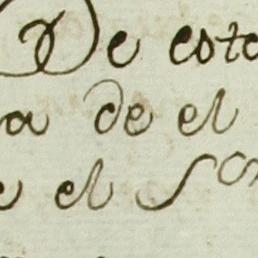 De esto
a de el
e el S.or